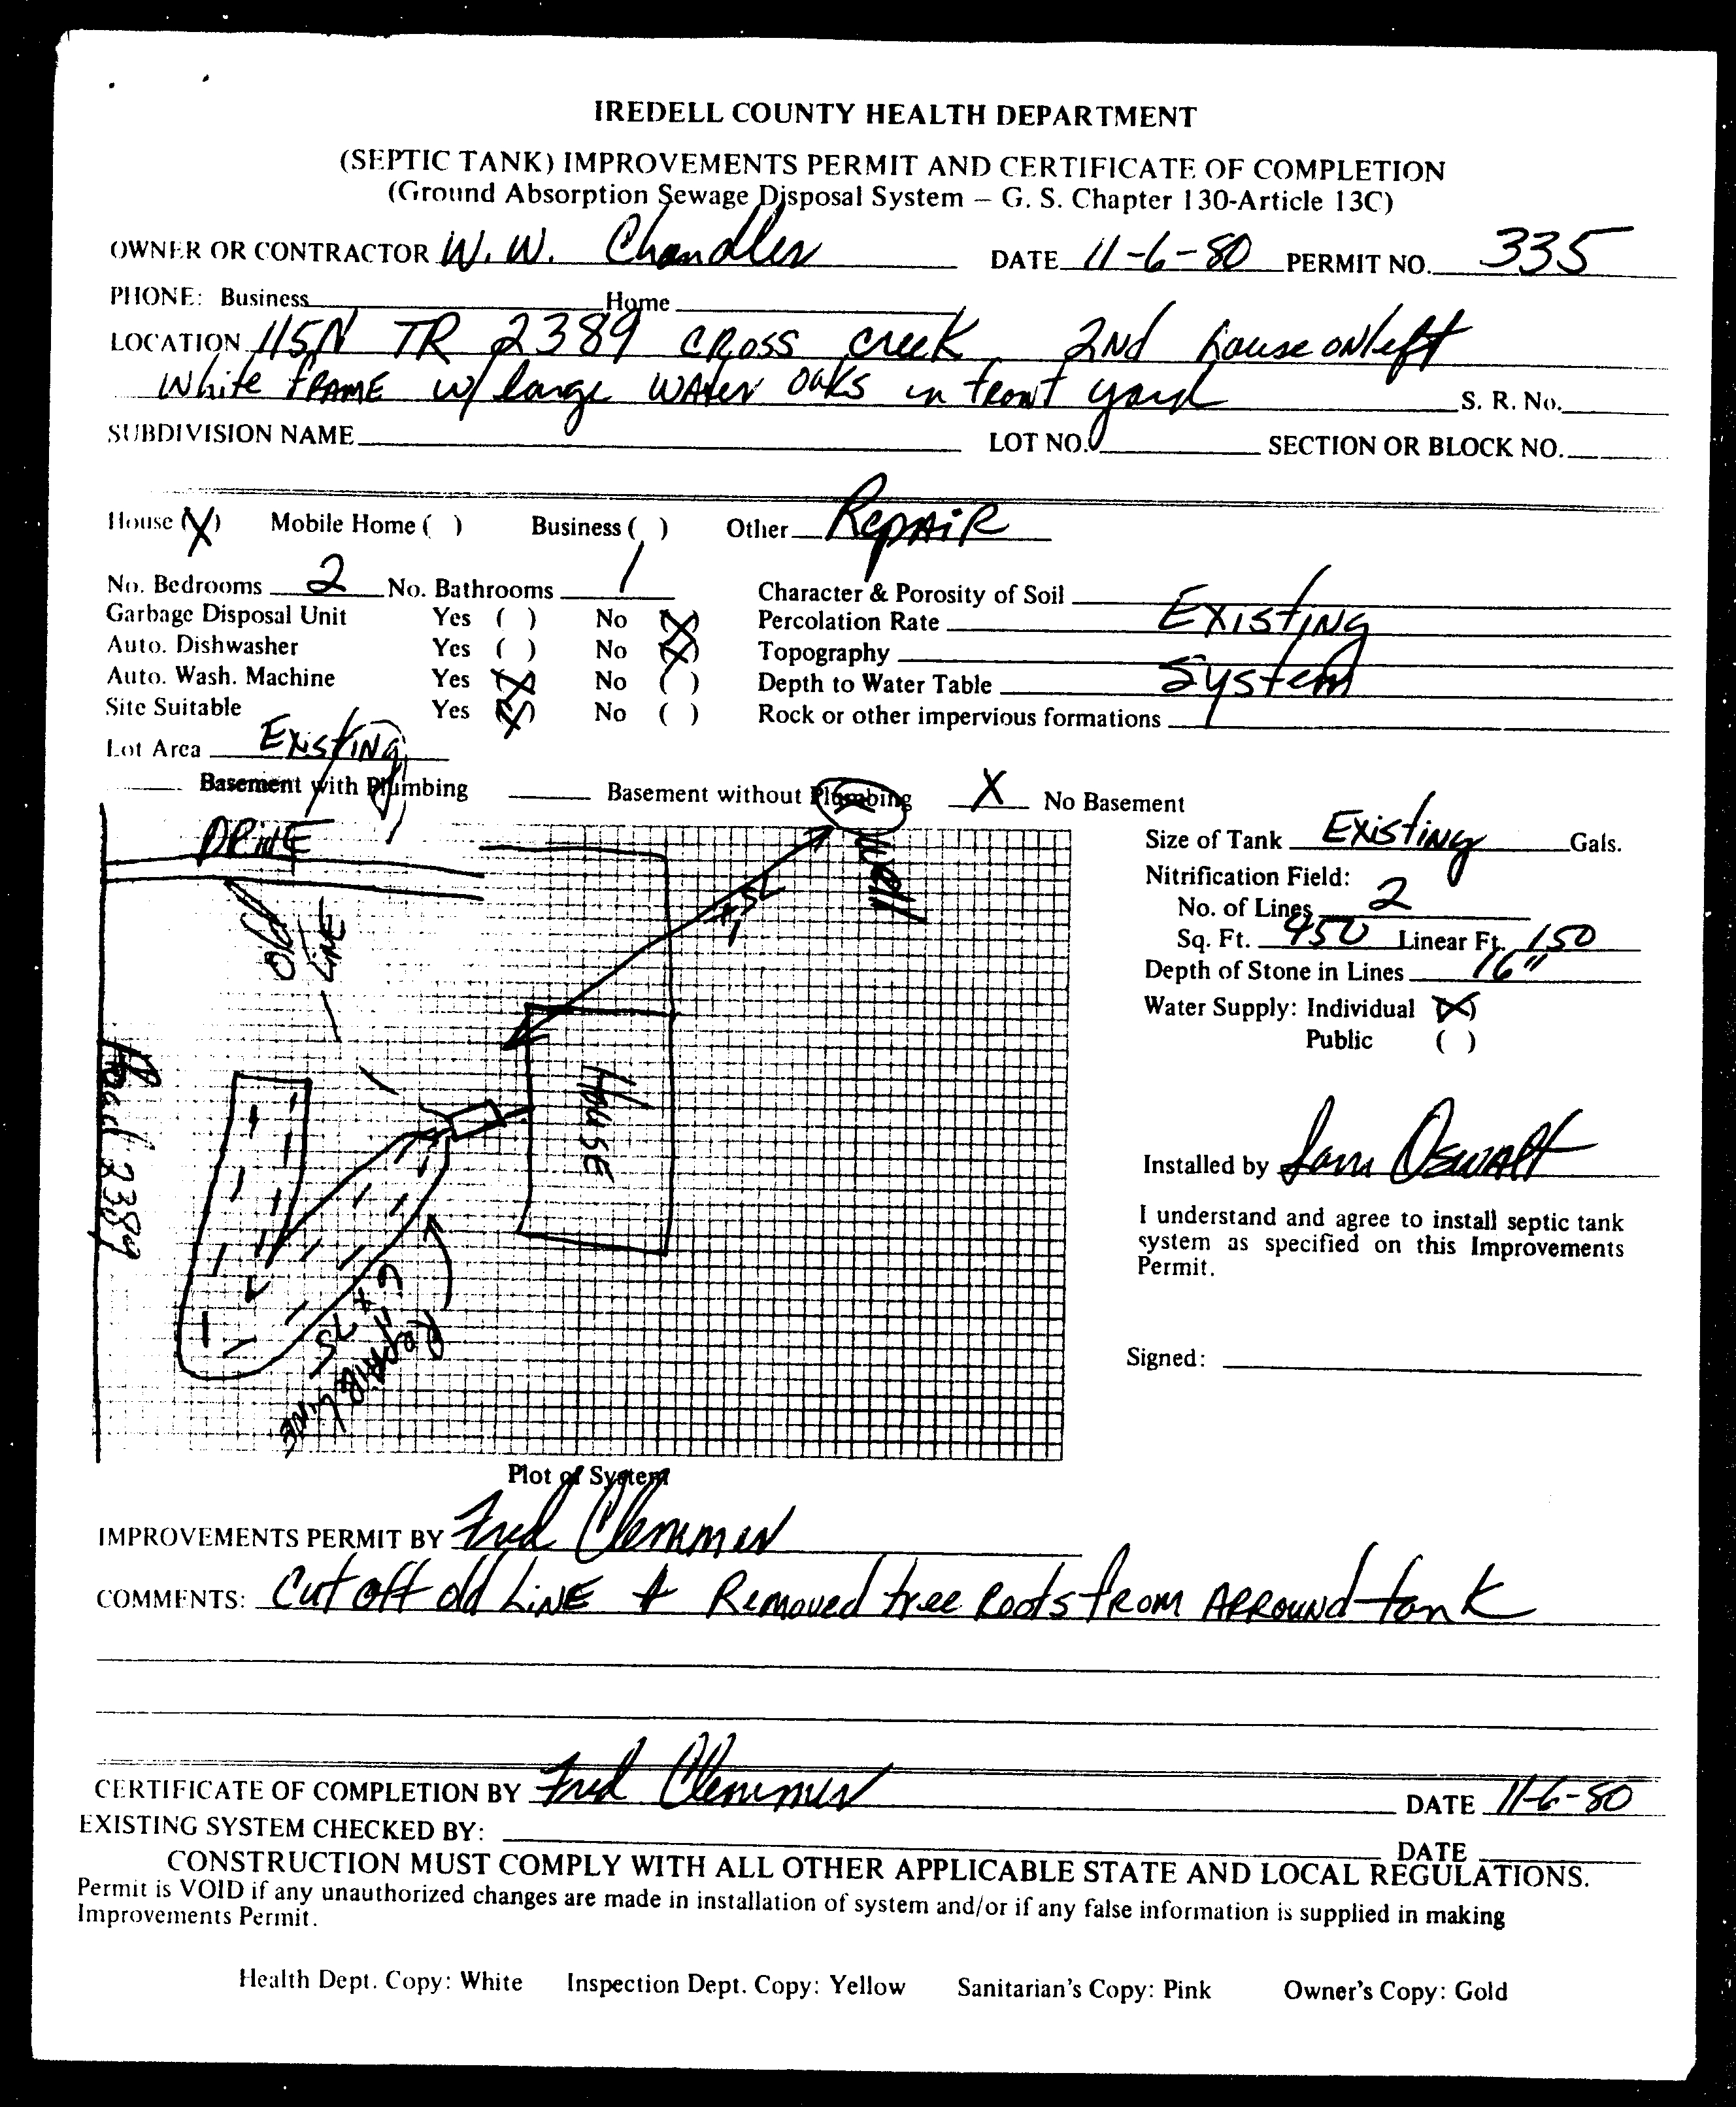 IREDELL COUNTY HEALTH DEPARTMENT
(SEPTIC TANK) IMPROVEMENTS PERMIT AND CERTIFICATE OF COMPLETION
(Ground Absorption Sewage Disposal System – G. S. Chapter 130-Article 13C)
OWNER OR CONTRACTOR W. W. Chandler DATE 11-6-80 PERMIT NO. 335
PHONE: Business Home
LOCATION 115N TR 2389 CROSS creek 2Nd house on left
White FRAME w/ large WAter OAKS in front yard S. R. No.
SUBDIVISION NAME LOT NO. SECTION OR BLOCK NO.
House (X) Mobile Home ( ) Business ( ) Other RepAiR
No. Bedrooms 2 No. Bathrooms 1 Character & Porosity of Soil
Garbage Disposal Unit Yes ( ) No (X) Percolation Rate Existing
Auto. Dishwasher Yes ( ) No (X) Topography
Auto. Wash. Machine Yes (X) No ( ) Depth to Water Table System
Site Suitable Yes (X) No ( ) Rock or other impervious formations
Lot Area Existing
Basement with Plumbing Basement without Plumbing X No Basement
DRIVE
Old LINE
75'+
Well
House
Road 2389
6 x 75
RepAIR LINE
Size of Tank Existing Gals.
Nitrification Field:
No. of Lines 2
Sq. Ft. 450 Linear Ft. 150
Depth of Stone in Lines 16"
Water Supply: Individual (X)
Public ( )
Installed by Oswalt
I understand and agree to install septic tank
system as specified on this Improvements
Permit.
Signed:
Plot of System
IMPROVEMENTS PERMIT BY Fred Clemmer
COMMENTS: Cut off old LiNE & Removed tree Roots from ARRound tank
CERTIFICATE OF COMPLETION BY Fred Clemmer DATE 11-6-80
EXISTING SYSTEM CHECKED BY: DATE
CONSTRUCTION MUST COMPLY WITH ALL OTHER APPLICABLE STATE AND LOCAL REGULATIONS.
Permit is VOID if any unauthorized changes are made in installation of system and/or if any false information is supplied in making
Improvements Permit.
Health Dept. Copy: White Inspection Dept. Copy: Yellow Sanitarian's Copy: Pink Owner's Copy: Gold